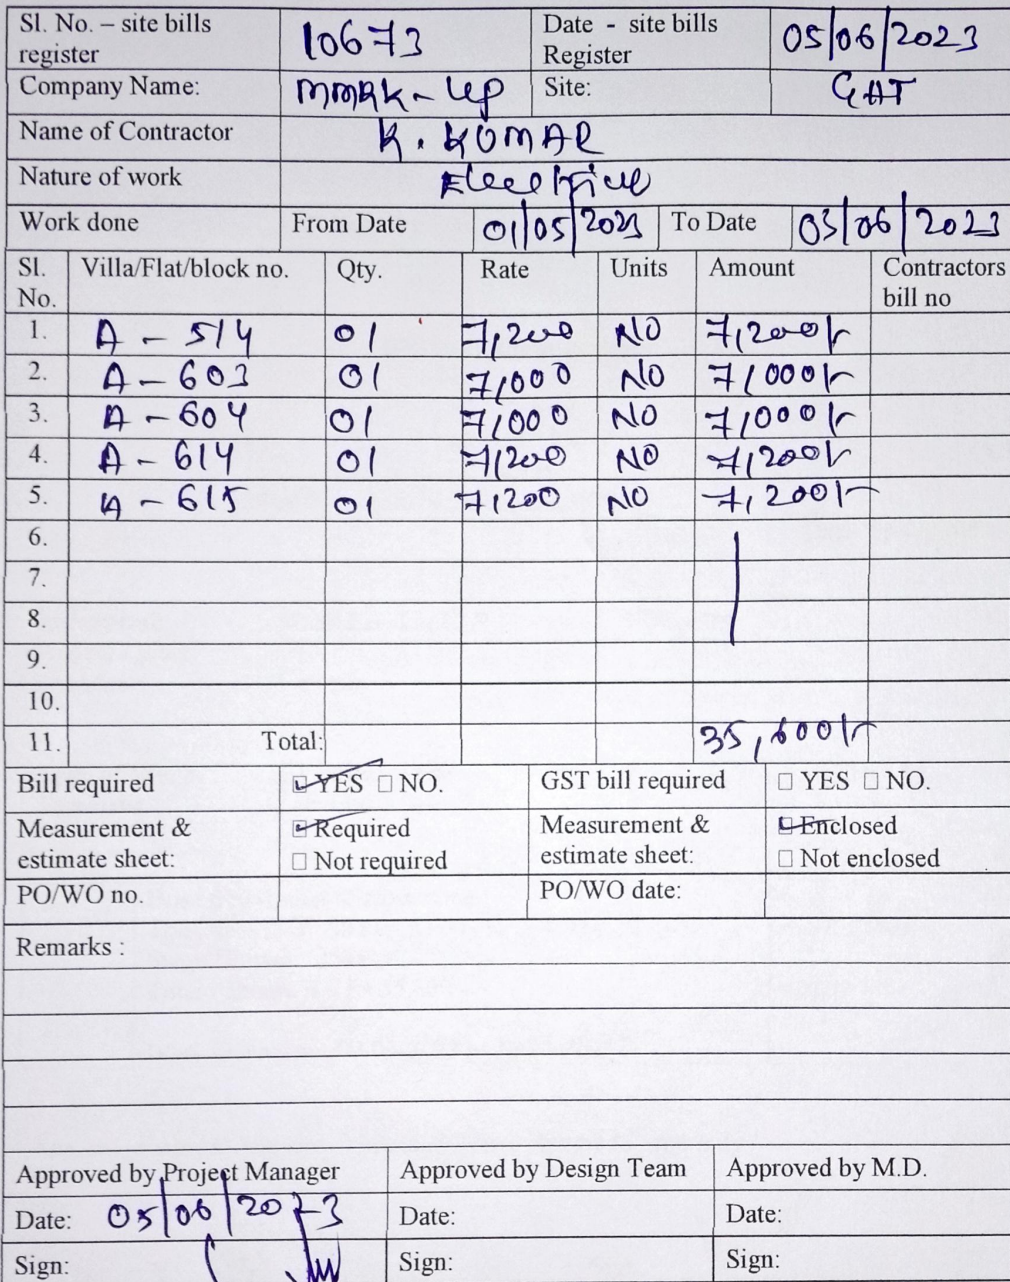 Sl. No. – site bills register 10673 Date - site bills Register 05/06/2023
Company Name: MMRK-Up Site: GHT
Name of Contractor K. KUMAR
Nature of work Electrical
Work done From Date 01/05/2023 To Date 03/06/2023
Sl. No. Villa/Flat/block no. Qty. Rate Units Amount Contractors bill no
1. A - 514 01 7,200 NO 7,200/-
2. A - 603 01 7,000 NO 7,000/-
3. A - 604 01 7,000 NO 7,000/-
4. A - 614 01 7,200 NO 7,200/-
5. A - 615 01 7,200 NO 7,200/-
6.
7.
8.
9.
10.
11. Total: 35,600/-
Bill required YES NO. GST bill required YES NO.
Measurement & estimate sheet: Required Not required Measurement & estimate sheet: Enclosed Not enclosed
PO/WO no. PO/WO date:
Remarks :
Approved by Project Manager Approved by Design Team Approved by M.D.
Date: 05/06/2023 Date: Date:
Sign: Sign: Sign: